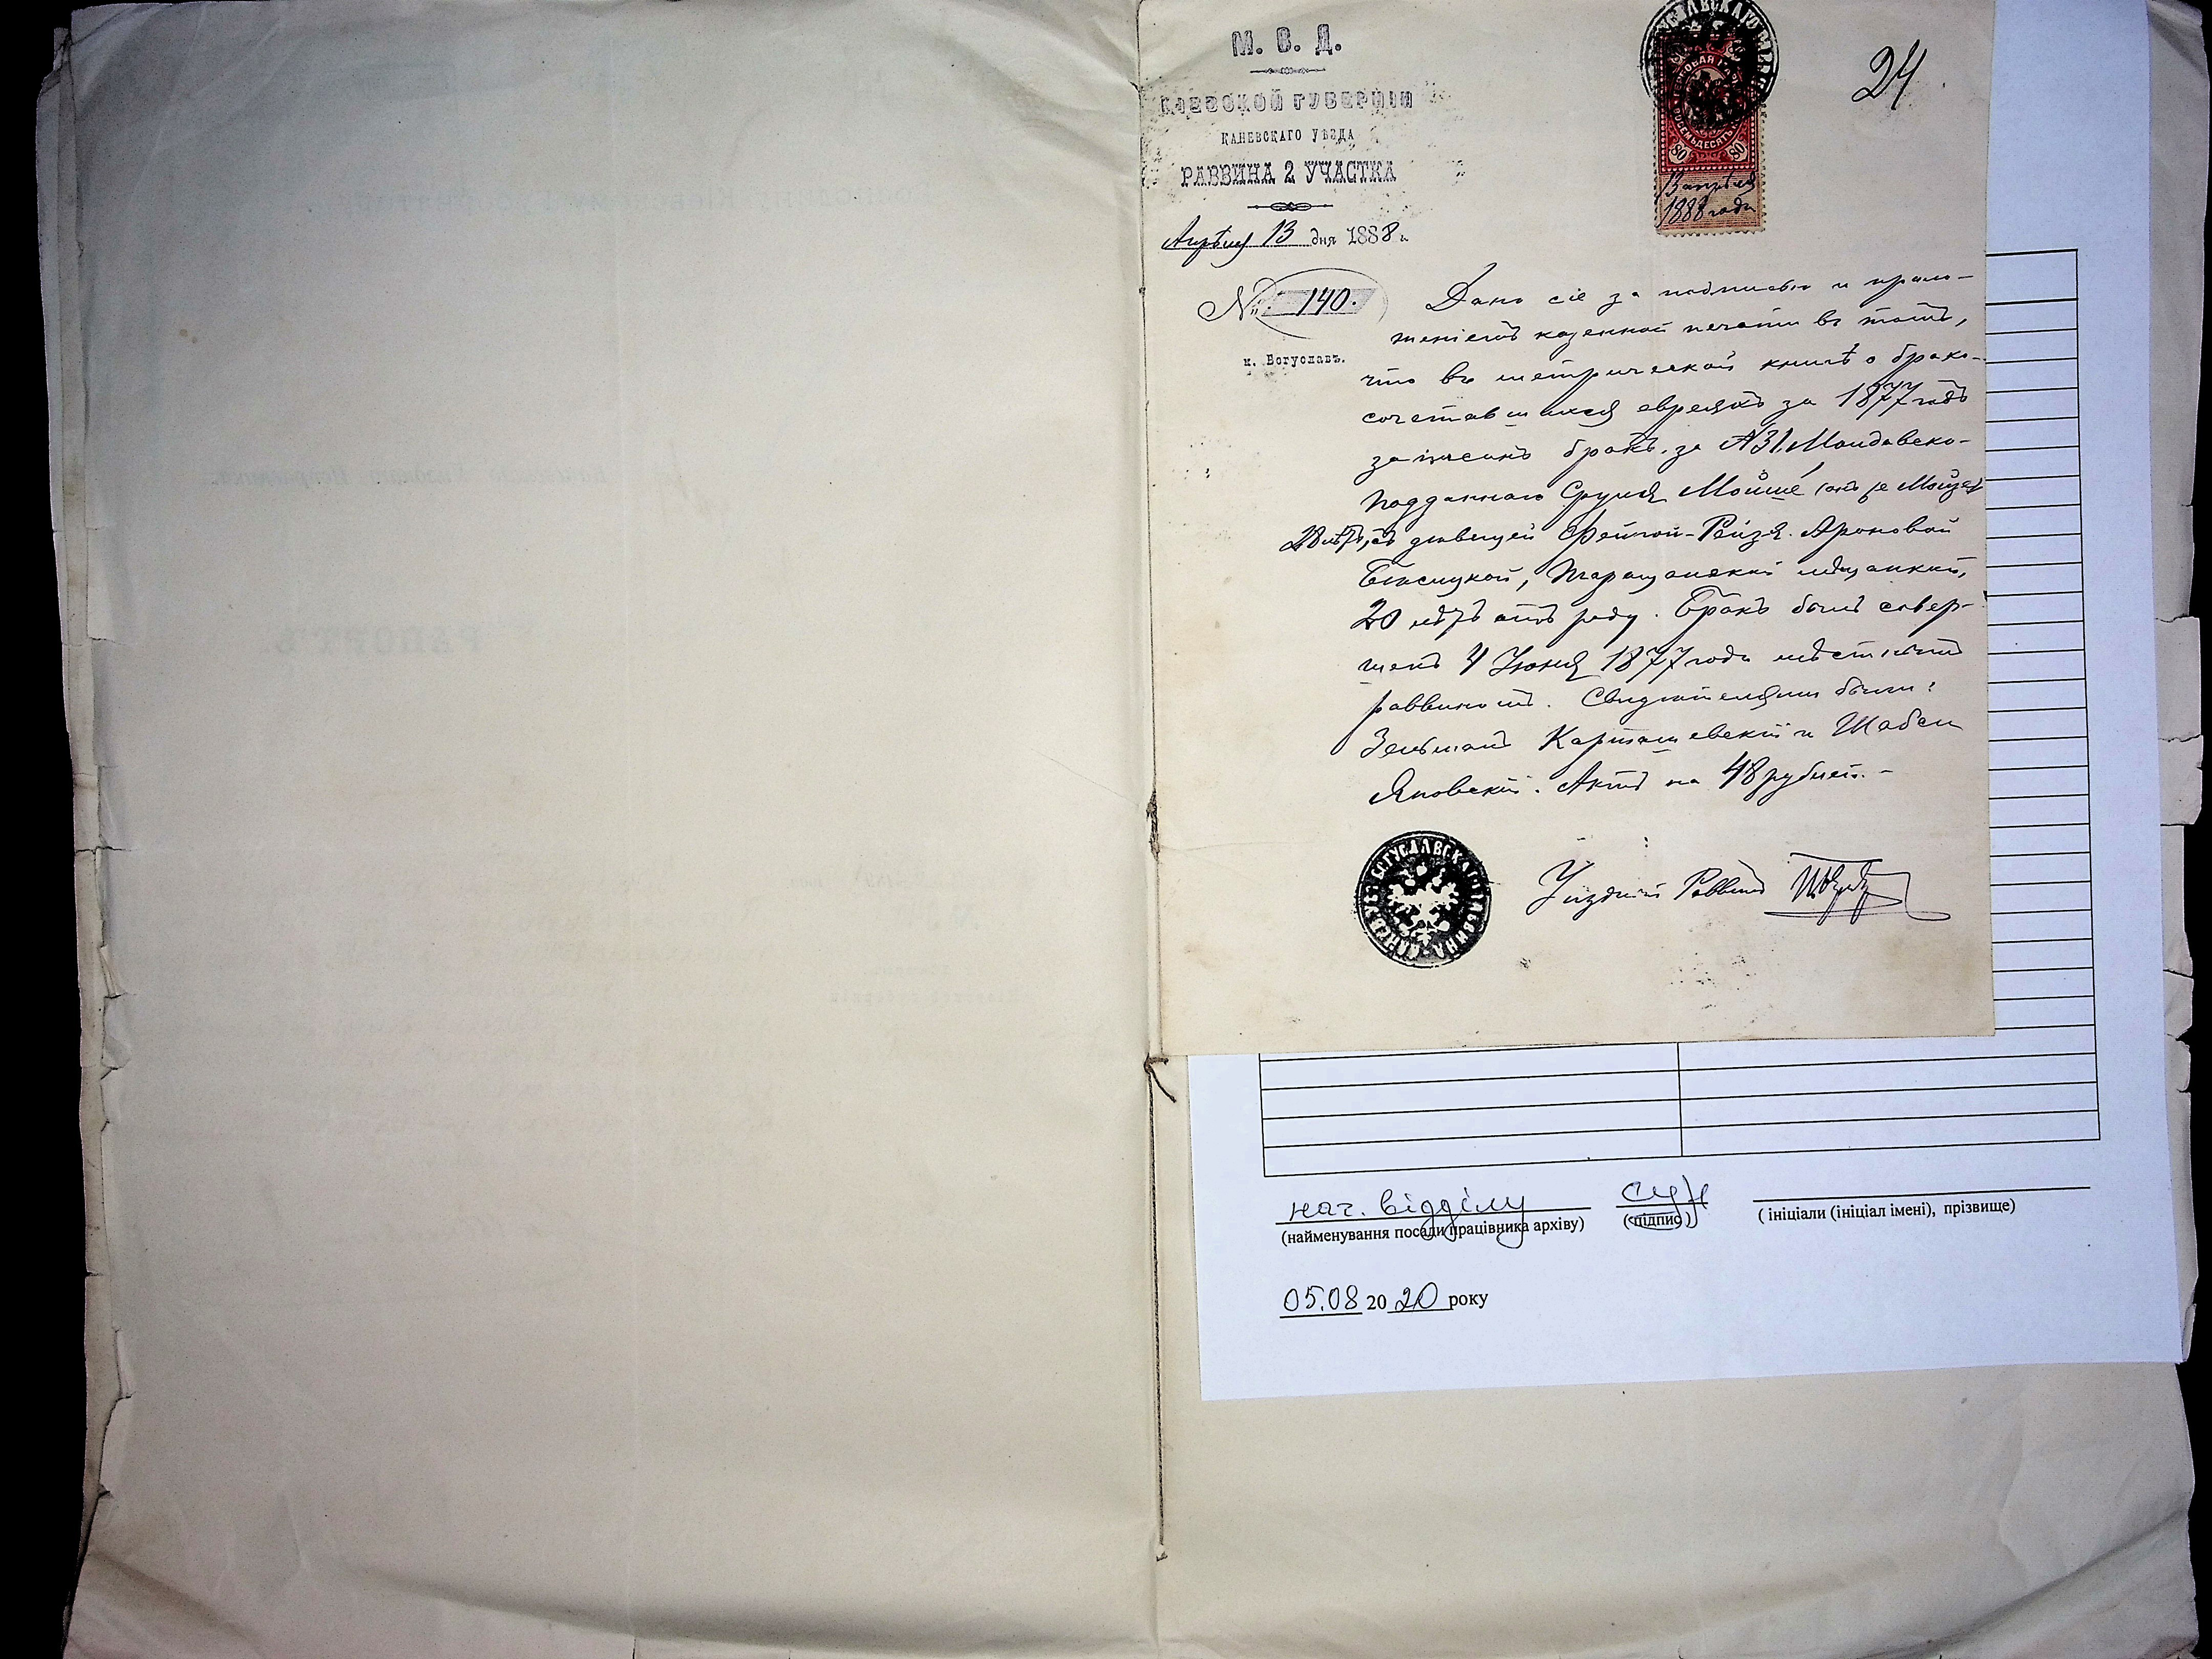 М. В. Д.
КІЕВСКОЙ ГУБЕРНІИ
КАНЕВСКАГО УѢЗДА
РАВВИНА 2 УЧАСТКА
Апрѣля 13 дня 1888 г.
№ 140.
м. Богуславъ.
24
80 80
13 апрѣля
1888 года
Дано сіе за подписью и прило-
женіемъ казенной печати въ томъ,
что въ метрической книгѣ о брако-
сочетавшихся евреяхъ за 1877 годъ
записанъ бракъ за № 31, Молдавско-
подданнаго Сруля Мойше (онъ же
28 лѣтъ, съ дѣвицей Фейгой-Рейзя Ароновой
Таращанской мѣщанкой,
20 лѣтъ отъ роду. Бракъ былъ совер-
шенъ 4 Іюня 1877 года мѣстнымъ
раввиномъ. Свидѣтелями были:
Зельманъ Карташевскій и Шабси
Яновскій. Актъ на 48 рублей. -
БОГУСЛАВСКАГО РАВВИНА
Уѣздный Раввинъ
нач. відділу
(найменування посади працівника архіву) (підпис) ( ініціали (ініціал імені), прізвище)
05.08 2020 року